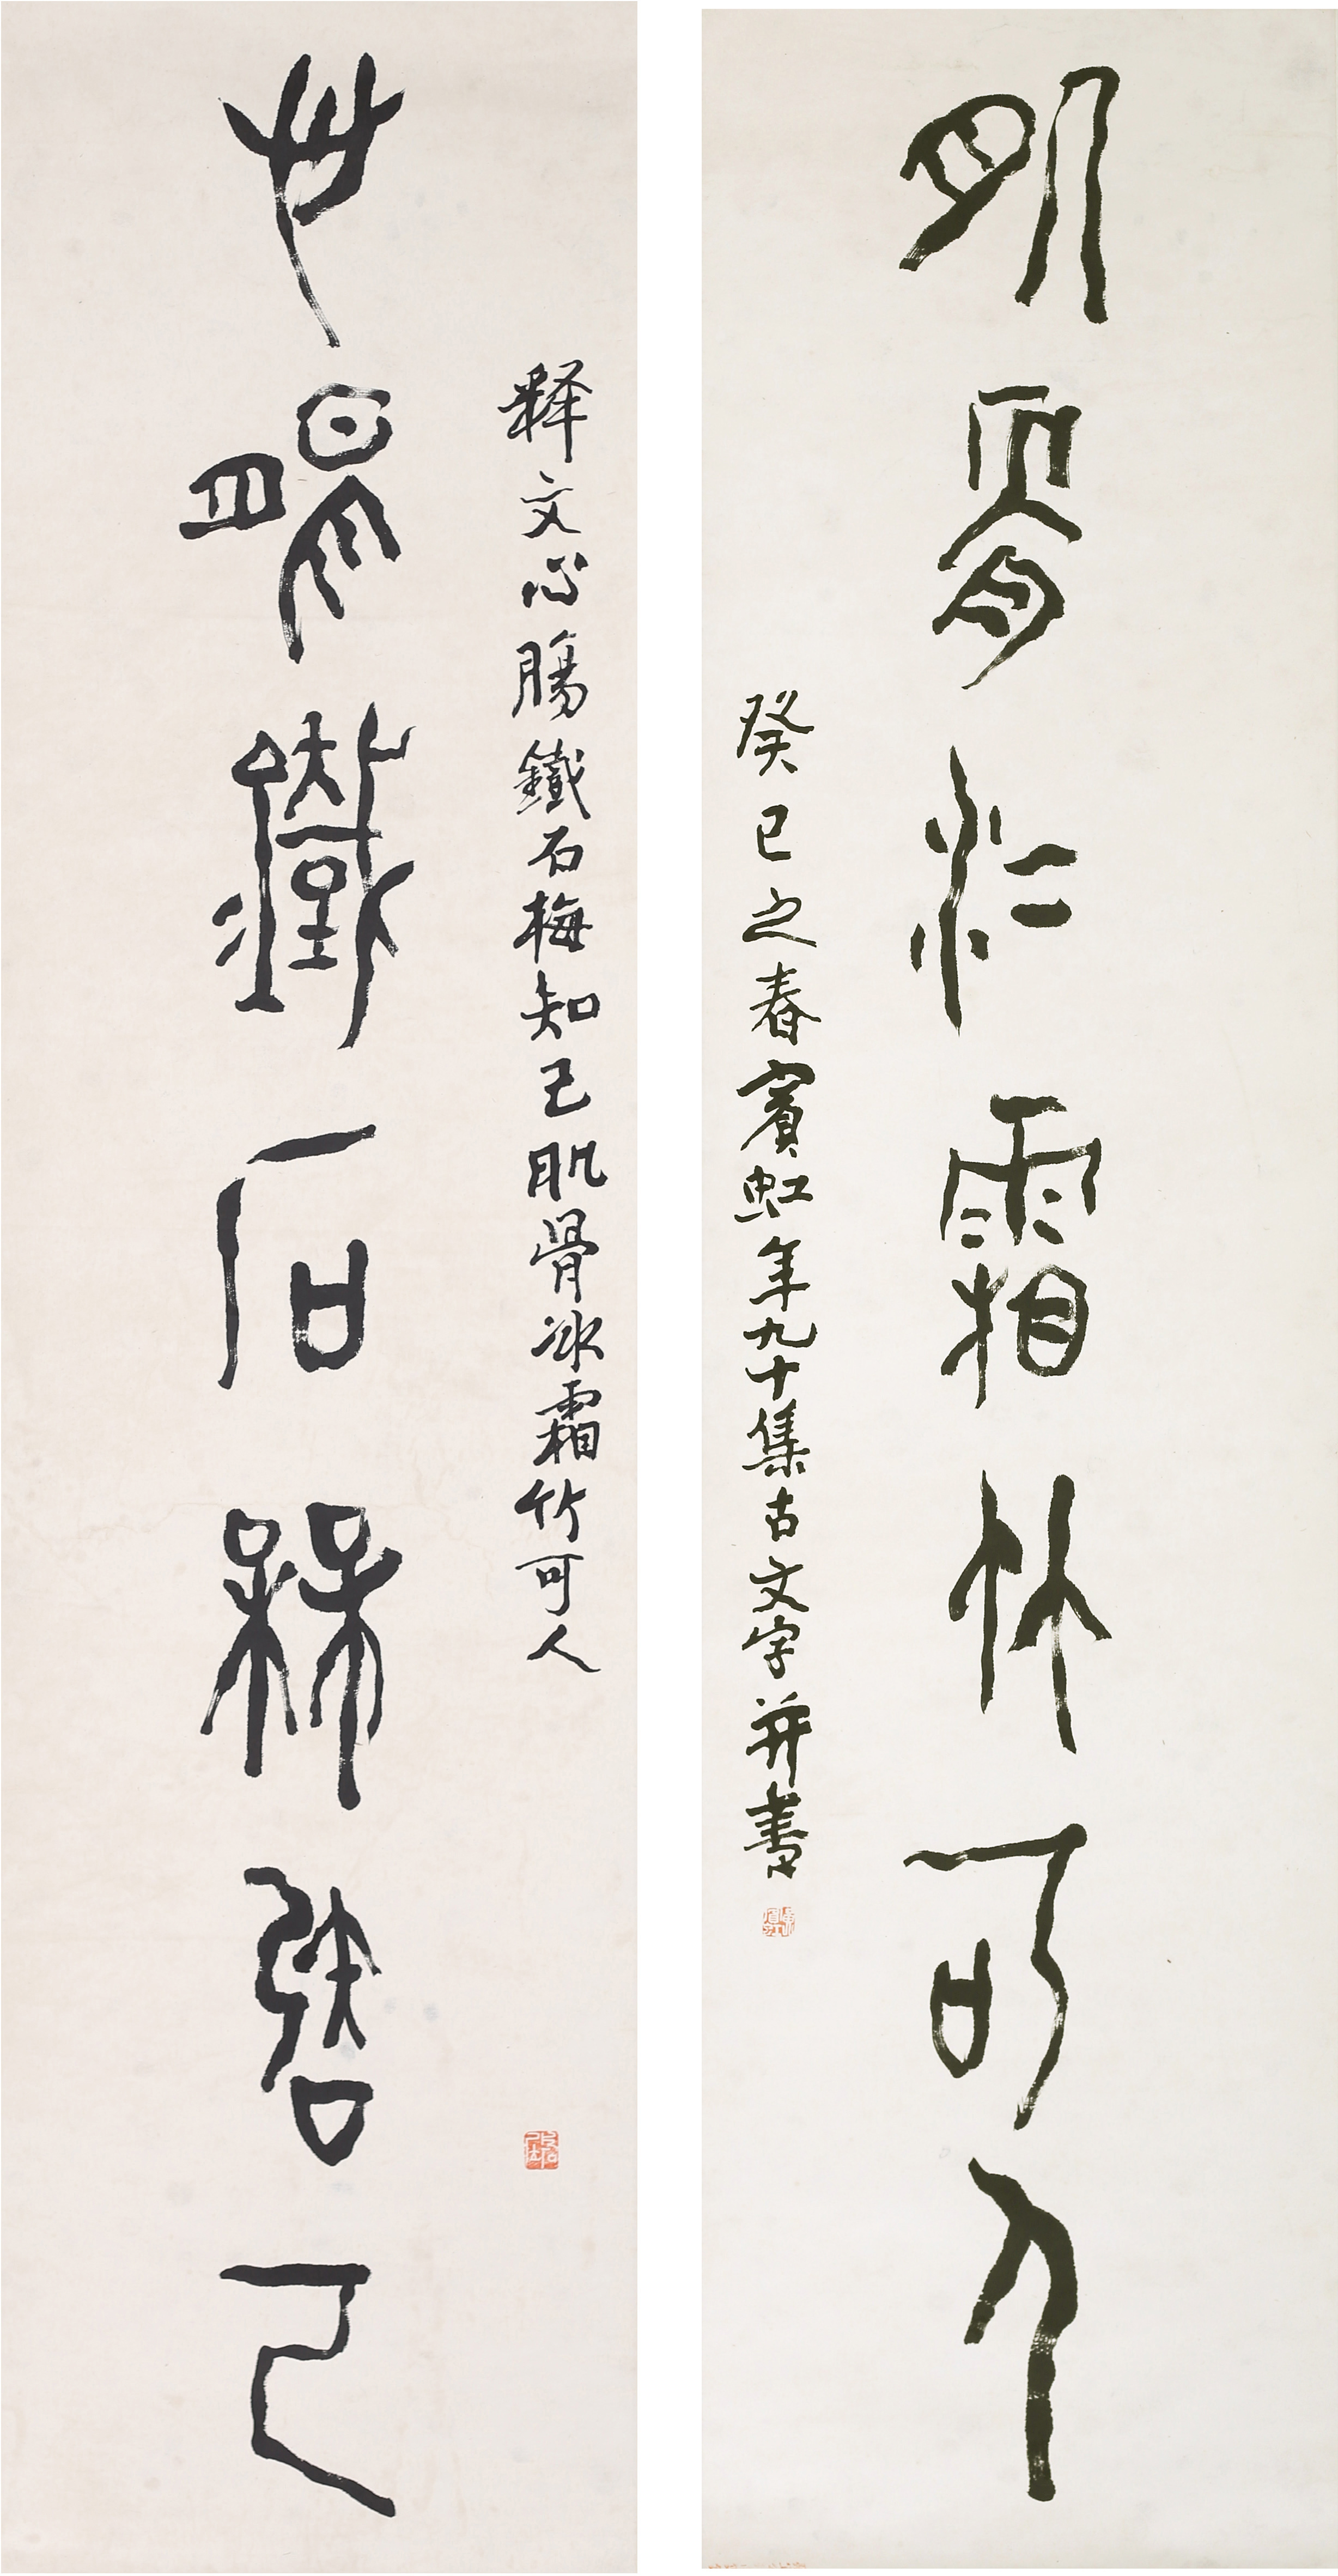 心腸鐵石梅知己
释文心腸鐵石梅知己肌骨冰霜竹可人
肌骨冰霜竹可人
癸巳之春賓虹年九十集古文字并書